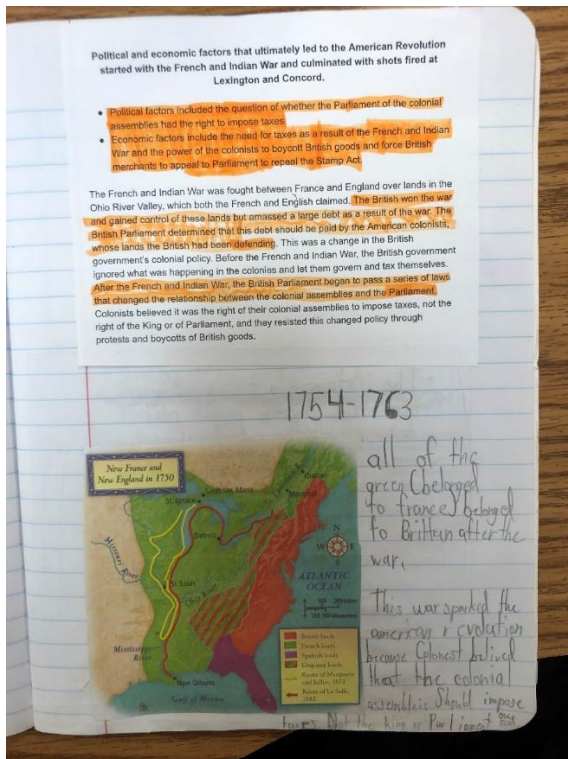 Political and economic factors that ultimately led to the American Revolution
started with the French and Indian War and culminated with shots fired at
Lexington and Concord.
• Political factors included the question of whether the Parliament of the colonial
assemblies had the right to impose taxes.
• Economic factors include the need for taxes as a result of the French and Indian
War and the power of the colonists to boycott British goods and force British
merchants to appeal to Parliament to repeal the Stamp Act.
The French and Indian War was fought between France and England over lands in the
Ohio River Valley, which both the French and English claimed. The British won the war
and gained control of these lands but amassed a large debt as a result of the war. The
British Parliament determined that this debt should be paid by the American colonists,
whose lands the British had been defending. This was a change in the British
government's colonial policy. Before the French and Indian War, the British government
ignored what was happening in the colonies and let them govern and tax themselves.
After the French and Indian War, the British Parliament began to pass a series of laws
that changed the relationship between the colonial assemblies and the Parliament.
Colonists believed it was the right of their colonial assemblies to impose taxes, not the
right of the King or of Parliament, and they resisted this changed policy through
protests and boycotts of British goods.
1754-1763
New France and
New England in 1750
Quebec
Montreal
Sault Ste. Marie
St. Ignace
Detroit
Missouri River
St. Louis
Ohio River
N
W E
S
ATLANTIC
OCEAN
Mississippi
River
New Orleans
Gulf of Mexico
British lands
French lands
Spanish lands
Disputed lands
Route of Marquette
and Jolliet, 1673
Route of La Salle,
1682
all of the
green (belonged
to france) belonged
to Brittain after the
war.
This war sparked the
american revolution
because Colonest belived
that the colonial
assembleis Should impose
taxes Not the King or Parliament